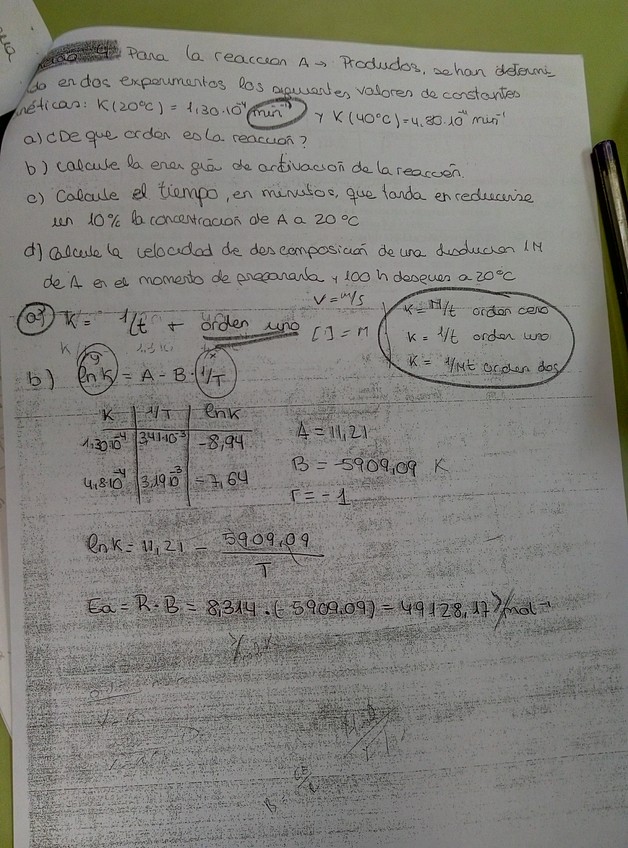 4 Para la reaccion A → Productos, se han determi
do en dos experimentos los siguientes valores de constantes
néticas: K(20°C) = 1,30·10⁻⁴ min⁻¹ y K(40°C)=4,80·10⁻⁴ min⁻¹
a) ¿De que orden es la reacción?
b) Calcule la energia de activación de la reacción.
c) Calcule el tiempo, en minutos, que tarda en reducirse
un 10% la concentración de A a 20°C
d) Calcule la velocidad de descomposición de una disolucion 1M
de A en el momento de prepararla y 100 h después a 20°C
V = M/s
a) K = 1/t → orden uno [ ] = M
K = M/t orden cero
K = 1/t orden uno
K = 1/Mt orden dos
y x
b) ln K = A - B · 1/T
K 1/T lnK
1,30·10⁻⁴ 3,41·10⁻³ -8,94
4,8·10⁻⁴ 3,19·10⁻³ -7,64
A = 11,21
B = -5909,09 K
r = -1
lnK = 11,21 - 5909,09 / T
Ea = R·B = 8,314·(-5909,09) = 49128,17 J/mol⁻¹